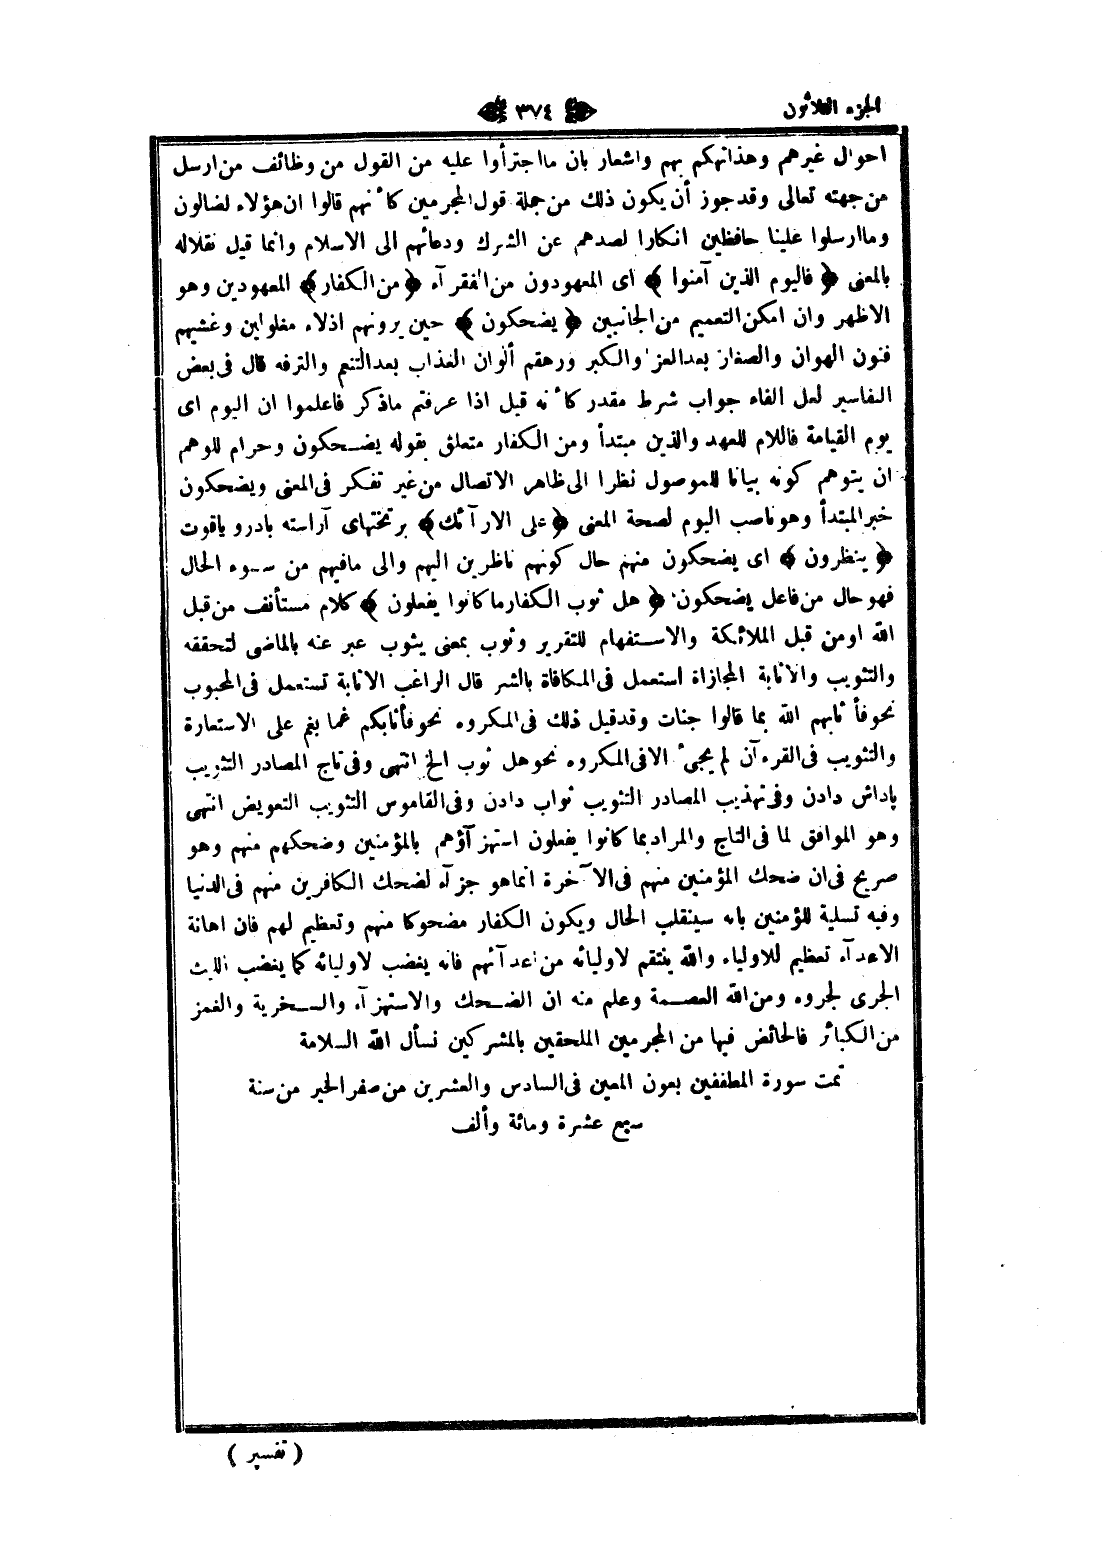 الجزء الثلاثون
٣٧٤
احوال غيرهم وهذا تهكم بهم واشعار بان ما اجترأوا عليه من القول من وظائف من ارسل
من جهته تعالى وقد جوز أن يكون ذلك من جملة قول المجرمين كأنهم قالوا ان هؤلاء لضالون
وما ارسلوا علينا حافظين انكارا لصدهم عن الشرك ودعائهم الى الاسلام وانما قيل نقلا له
بالمعنى ﴿ فاليوم الذين آمنوا ﴾ اى المعهودون من الفقرآء ﴿ من الكفار ﴾ المعهودين وهو
الاظهر وان امكن التعميم من الجانبين ﴿ يضحكون ﴾ حين يرونهم اذلاء مغلولين وغشيهم
فنون الهوان والصغار بعد العز والكبر ورهقهم ألوان العذاب بعد التنعم والترفه قال فى بعض
التفاسير لعل الفاء جواب شرط مقدر كأنه قيل اذا عرفتم ماذكر فاعلموا ان اليوم اى
يوم القيامة فاللام للعهد والذين مبتدأ ومن الكفار متعلق بقوله يضحكون وحرام للوهم
ان يتوهم كونه بيانا للموصول نظرا الى ظاهر الاتصال من غير تفكر فى المعنى ويضحكون
خبر المبتدأ وهو ناصب اليوم لصحة المعنى ﴿ على الارآئك ﴾ بر تختهاى آراسته بادر و ياقوت
﴿ ينظرون ﴾ اى يضحكون منهم حال كونهم ناظرين اليهم والى مافيهم من سوء الحال
فهو حال من فاعل يضحكون ﴿ هل ثوب الكفار ما كانوا يفعلون ﴾ كلام مستأنف من قبل
الله او من قبل الملائكة والاستفهام للتقرير وثوب بمعنى يثوب عبر عنه بالماضى لتحققه
والتثويب والاثابة المجازاة استعمل فى المكافاة بالشر قال الراغب الاثابة تستعمل فى المحبوب
نحو فأثابهم الله بما قالوا جنات وقد قيل ذلك فى المكروه نحو فأثابكم غما بغم على الاستعارة
والتثويب فى القرءآن لم يجئ الا فى المكروه نحو هل ثوب الخ انتهى وفى تاج المصادر التثويب
پاداش دادن وفى تهذيب المصادر التثويب ثواب دادن وفى القاموس التثويب التعويض انتهى
وهو الموافق لما فى التاج والمراد بما كانوا يفعلون استهزآؤهم بالمؤمنين وضحكهم منهم وهو
صريح فى ان ضحك المؤمنين منهم فى الآخرة انما هو جزآء لضحك الكافرين منهم فى الدنيا
وفيه تسلية للمؤمنين بانه سينقلب الحال ويكون الكفار مضحوكا منهم وتعظيم لهم فان اهانة
الاعدآء تعظيم للاولياء والله ينتقم لاوليائه من اعدآئهم فانه يغضب لاوليائه كما يغضب الليث
الجرى لجروه ومن الله العصمة وعلم منه ان الضحك والاستهزآء والسخرية والغمز
من الكبائر فالخائض فيها من المجرمين الملحقين بالمشركين نسأل الله السلامة
تمت سورة المطففين بعون المعين فى السادس والعشرين من صفر الخير من سنة
سبع عشرة ومائة وألف
( تفسير )